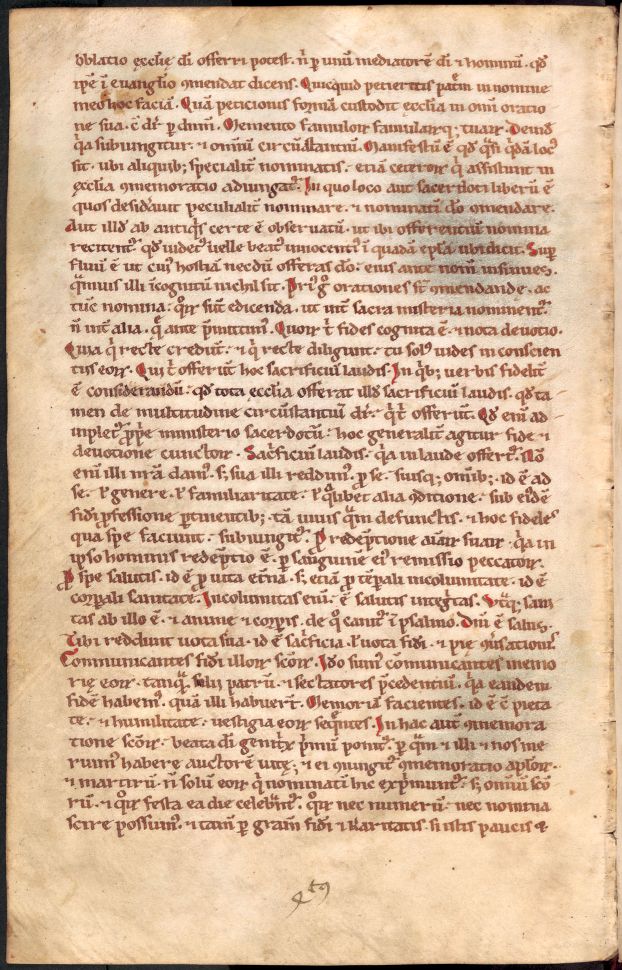 oblatio ęcclię dī offerri potest. n̄ p unū mediatorē dī ⁊ hominū. qd̄
ipē ī evanglio ꝯmendat dicens. Quicquid petieritis patrē in nomine
meo hoc faciā. Quā peticionis formā custodit ęcclia in omī oratio
ne sua. c̄ dr̄ p dnm̄. Memento famulorꝝ famularꝝq; tuarꝝ. Deind̄
q̄a subiungitur. ⁊ omniū circūstantiū. Manifestū ē qd̄ q̄si q̄dā loc᷒
sit. ubi aliquib; specialit̄ nominatis. etiā ceterorꝝ q̄ assistunt in
ęcclia ꝯmemoratio adiungat᷒. In quo loco aut sacerdoti liberū ē
quos desid̄avit peculialit̄ nominare. ⁊ nominatī dō ꝯmendare.
Aut illd̄ ab antiq̄s certe ē observatū. ut ibi offerentiū nomina
recitent᷒. qd̄ videt᷒ velle beat᷒ innocenti᷒ ī quadā epl̄a ubi dicit. Sup
fluū ē ut cui᷒ hostiā necdū offeras dō. ei᷒ ante nom̄ insinues.
quāvis illi īcognitū nichil sit. Pri᷒ g̊ orationes st̄ ꝯmendande. ac
tūc nomina. q̊rꝝ sūt edicenda. ut int̄ sacra misteria nominent᷒.
n̄ int̄ alia. q̄ ante p̄mittim᷒. Quorꝝ t̄ fides cognita ē. ⁊ nota devotio.
Quia q̄ recte credūt. ⁊ q̄ recte diligunt. tu sol᷒ vides in conscien
tiis eorꝝ. Qui t̄ offerūt hoc sacrificiū laudis. In q̄b; verbis fidelit̄
ē considerandū. qd̄ tota ęcclia offerat illd̄ sacrificiū laudis. qd̄ ta
men de multitudine circūstantiū dr̄. q̄ t̄ offerūt. Qd̄ enī ad
inplet᷒ pp̄e ministerio sacerdotū. hoc generalit̄ agitur fide ⁊
devotione cunctorꝝ. Sacrificiū laudis. q̄a in laude offert᷒. Nō
enī illi nr̄a dam᷒. s; sua illi reddim᷒. p se. suisq; omīb;. id ē ad
se. ł genere. ł familiaritate. ł q̄libet alia ꝯditione. sub eīdē
fidī p̄fessione ptinentib;. tā vivis quā defunctis. ⁊ hoc fideles
qua spe faciunt. subiungit᷒. P redēptione aīarꝝ suarꝝ. q̄a in
ipso hominis redēptio ē. p sanguinē ei᷒ remissio peccatorꝝ.
P spe salutis. id ē p vita etn̄a. s; etiā p tēpali incolumitate. id ē
corpali sanitate. Incolumitas enī. ē salutis inteḡtas. Utq; sani
tas ab illo ē. ⁊ anime ⁊ corpis. de q̊ canit᷒ ī psalmo. Dnī ē salus.
Tibi reddunt vota sua. id ē sacrificia. ł vota fidī. ⁊ pię ꝯversationis.
Communicantes fidī illorꝝ scōrꝝ. Ido sum᷒ cōmunicantes memo
rię eorꝝ. tanquā filii patrū. ⁊ sectatores p̄cedentiū. q̄a eandem
fidē habem᷒. quā illi habuert̄. Memoriā facientes. id ē ē pieta
te. ⁊ humilitate. vestigia eorꝝ seq̄ntes. In hac aut̄ ꝯmemora
tione scōrꝝ. beata dī genitx̄ p̄mū ponit᷒. p quā ⁊ illi ⁊ nos me
ruim᷒ habere auctorē vitę. ⁊ ei iungit᷒ ꝯmemoratio aplorꝝ.
⁊ martirū. n̄ solū eorꝝ q̄ nominatī hic exp̄munt᷒. s; omniū scō
rū. ⁊ q̊rꝝ festa ea die celebn̄t᷒. q̊rꝝ nec numerū. nec nomina
scire possum᷒. ⁊ tam̄ p gram̄ fidī ⁊ karitatis. si istis paucis ⁊